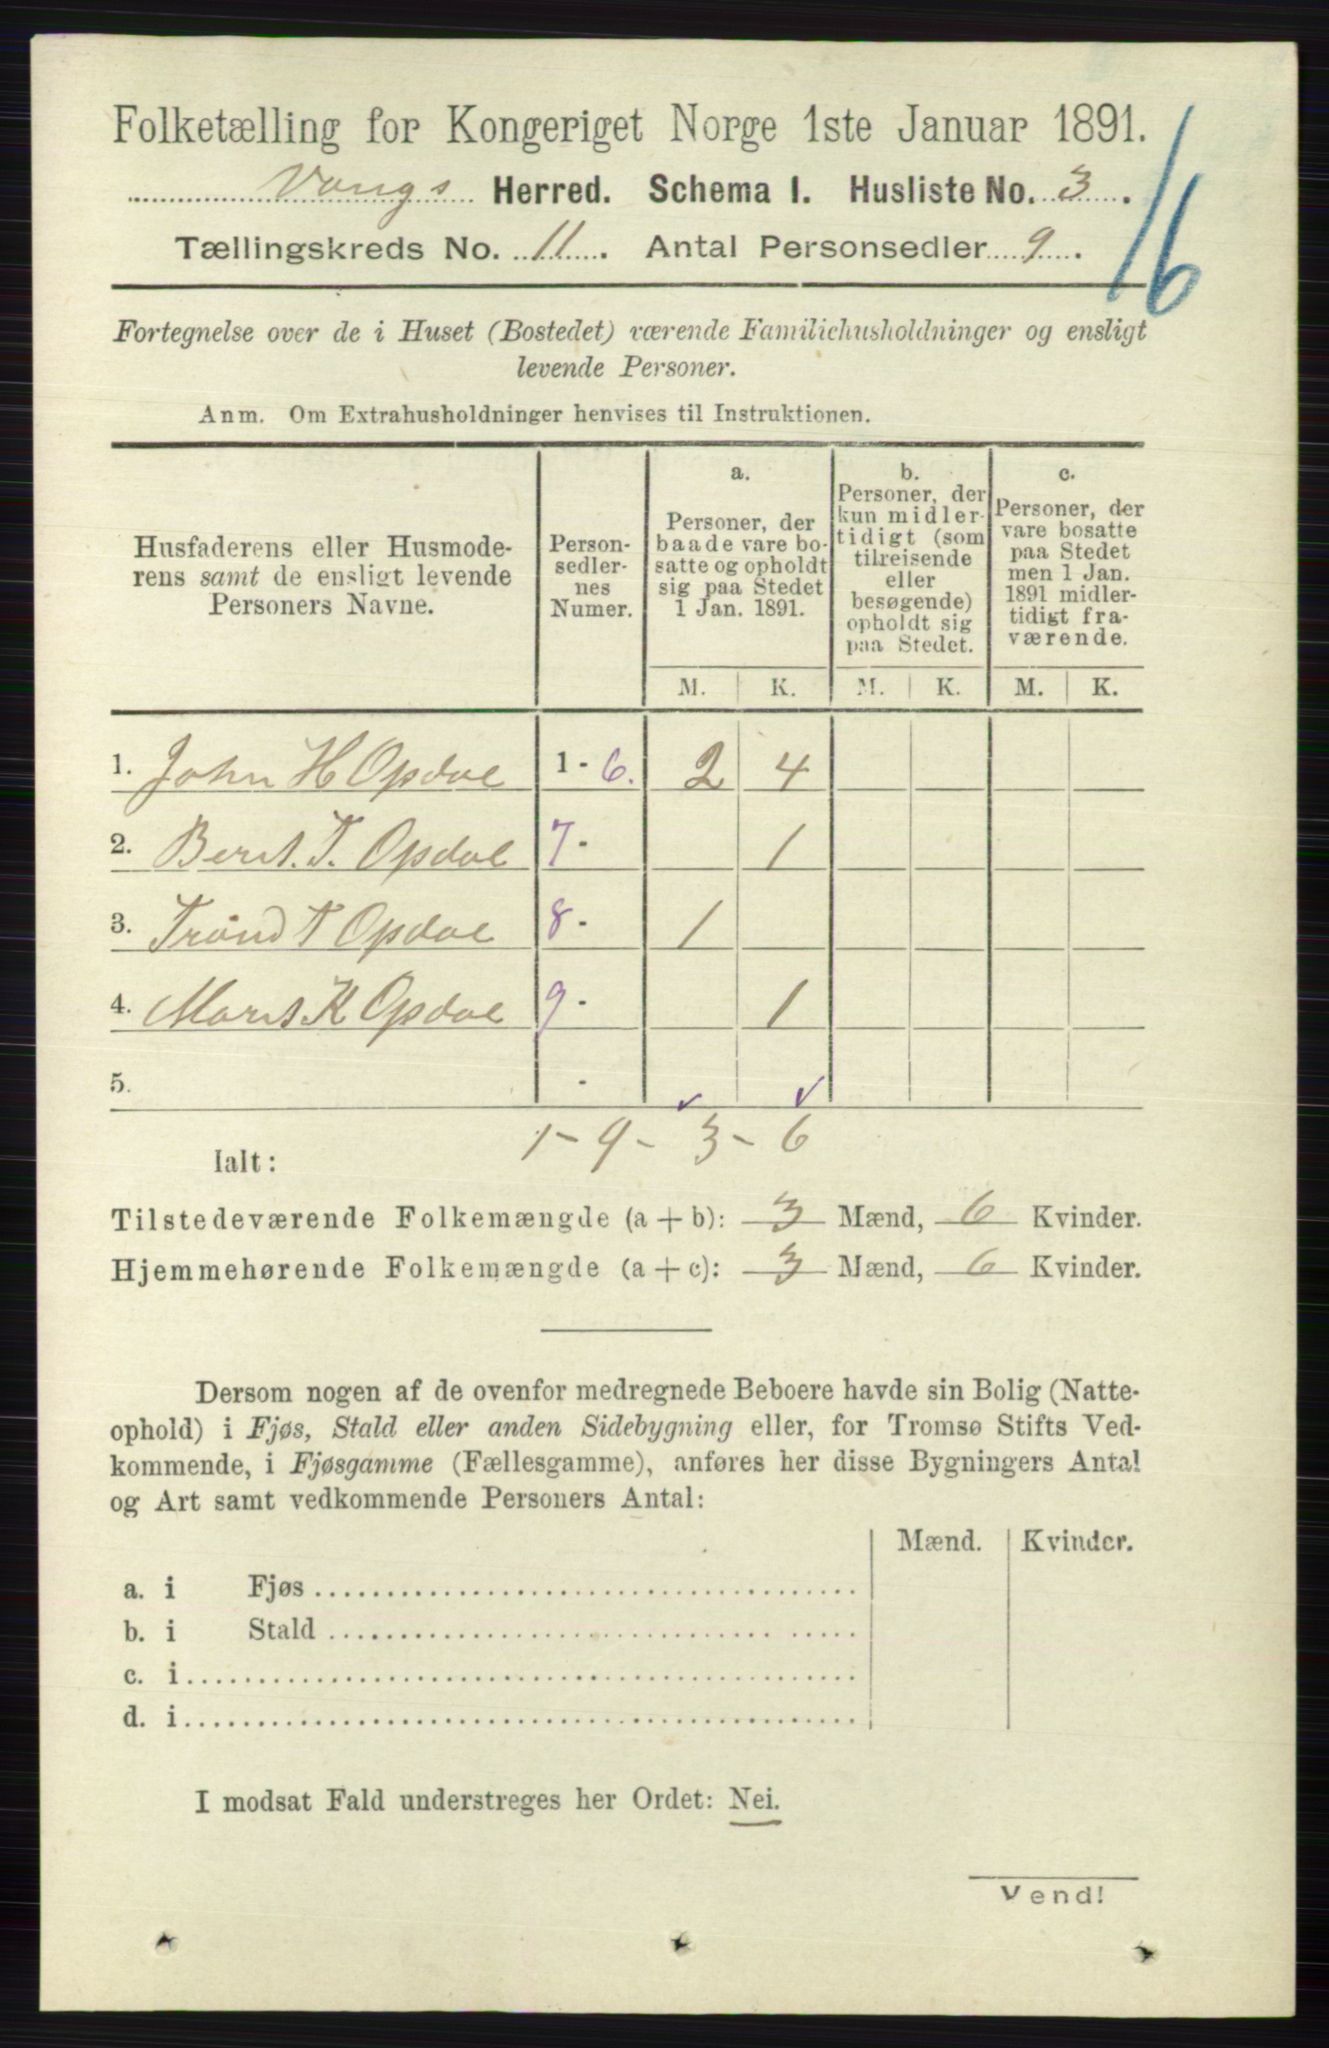 Folketælling for Kongeriget Norge 1ste Januar 1891.
Vangs Herred. Schema I. Husliste No. 3.
Tællingskreds No. 11. Antal Personsedler 9.
16
Fortegnelse over de i Huset (Bostedet) værende Familiehusholdninger og ensligt
levende Personer.
Anm. Om Extrahusholdninger henvises til Instruktionen.
Husfaderens eller Husmode-
rens samt de ensligt levende
Personers Navne.
Person-
sedler-
nes
Numer.
a.
Personer, der
baade vare bo-
satte og opholdt
sig paa Stedet
1 Jan. 1891.
b.
Personer, der
kun midler-
tidigt (som
tilreisende
eller
besøgende)
opholdt sig
paa Stedet.
c.
Personer, der
vare bosatte
paa Stedet
men 1 Jan.
1891 midler-
tidigt fra-
værende.
M. K. M. K. M. K.
1. John H Opdal 1 - 6. 2 4
2. Berit. T. Opdal 7 - 1
3. Trønd T Opdal 8 - 1
4. Marit K Opdal 9 - 1
5. -
1 - 9 - 3 - 6
Ialt:
Tilstedeværende Folkemængde (a + b): 3 Mænd, 6 Kvinder.
Hjemmehørende Folkemængde (a + c): 3 Mænd, 6 Kvinder.
Dersom nogen af de ovenfor medregnede Beboere havde sin Bolig (Natte-
ophold) i Fjøs, Stald eller anden Sidebygning eller, for Tromsø Stifts Ved-
kommende, i Fjøsgamme (Fællesgamme), anføres her disse Bygningers Antal
og Art samt vedkommende Personers Antal:
Mænd. Kvinder.
a. i Fjøs
b. i Stald
c. i
d. i
I modsat Fald understreges her Ordet: Nei.
Vend!